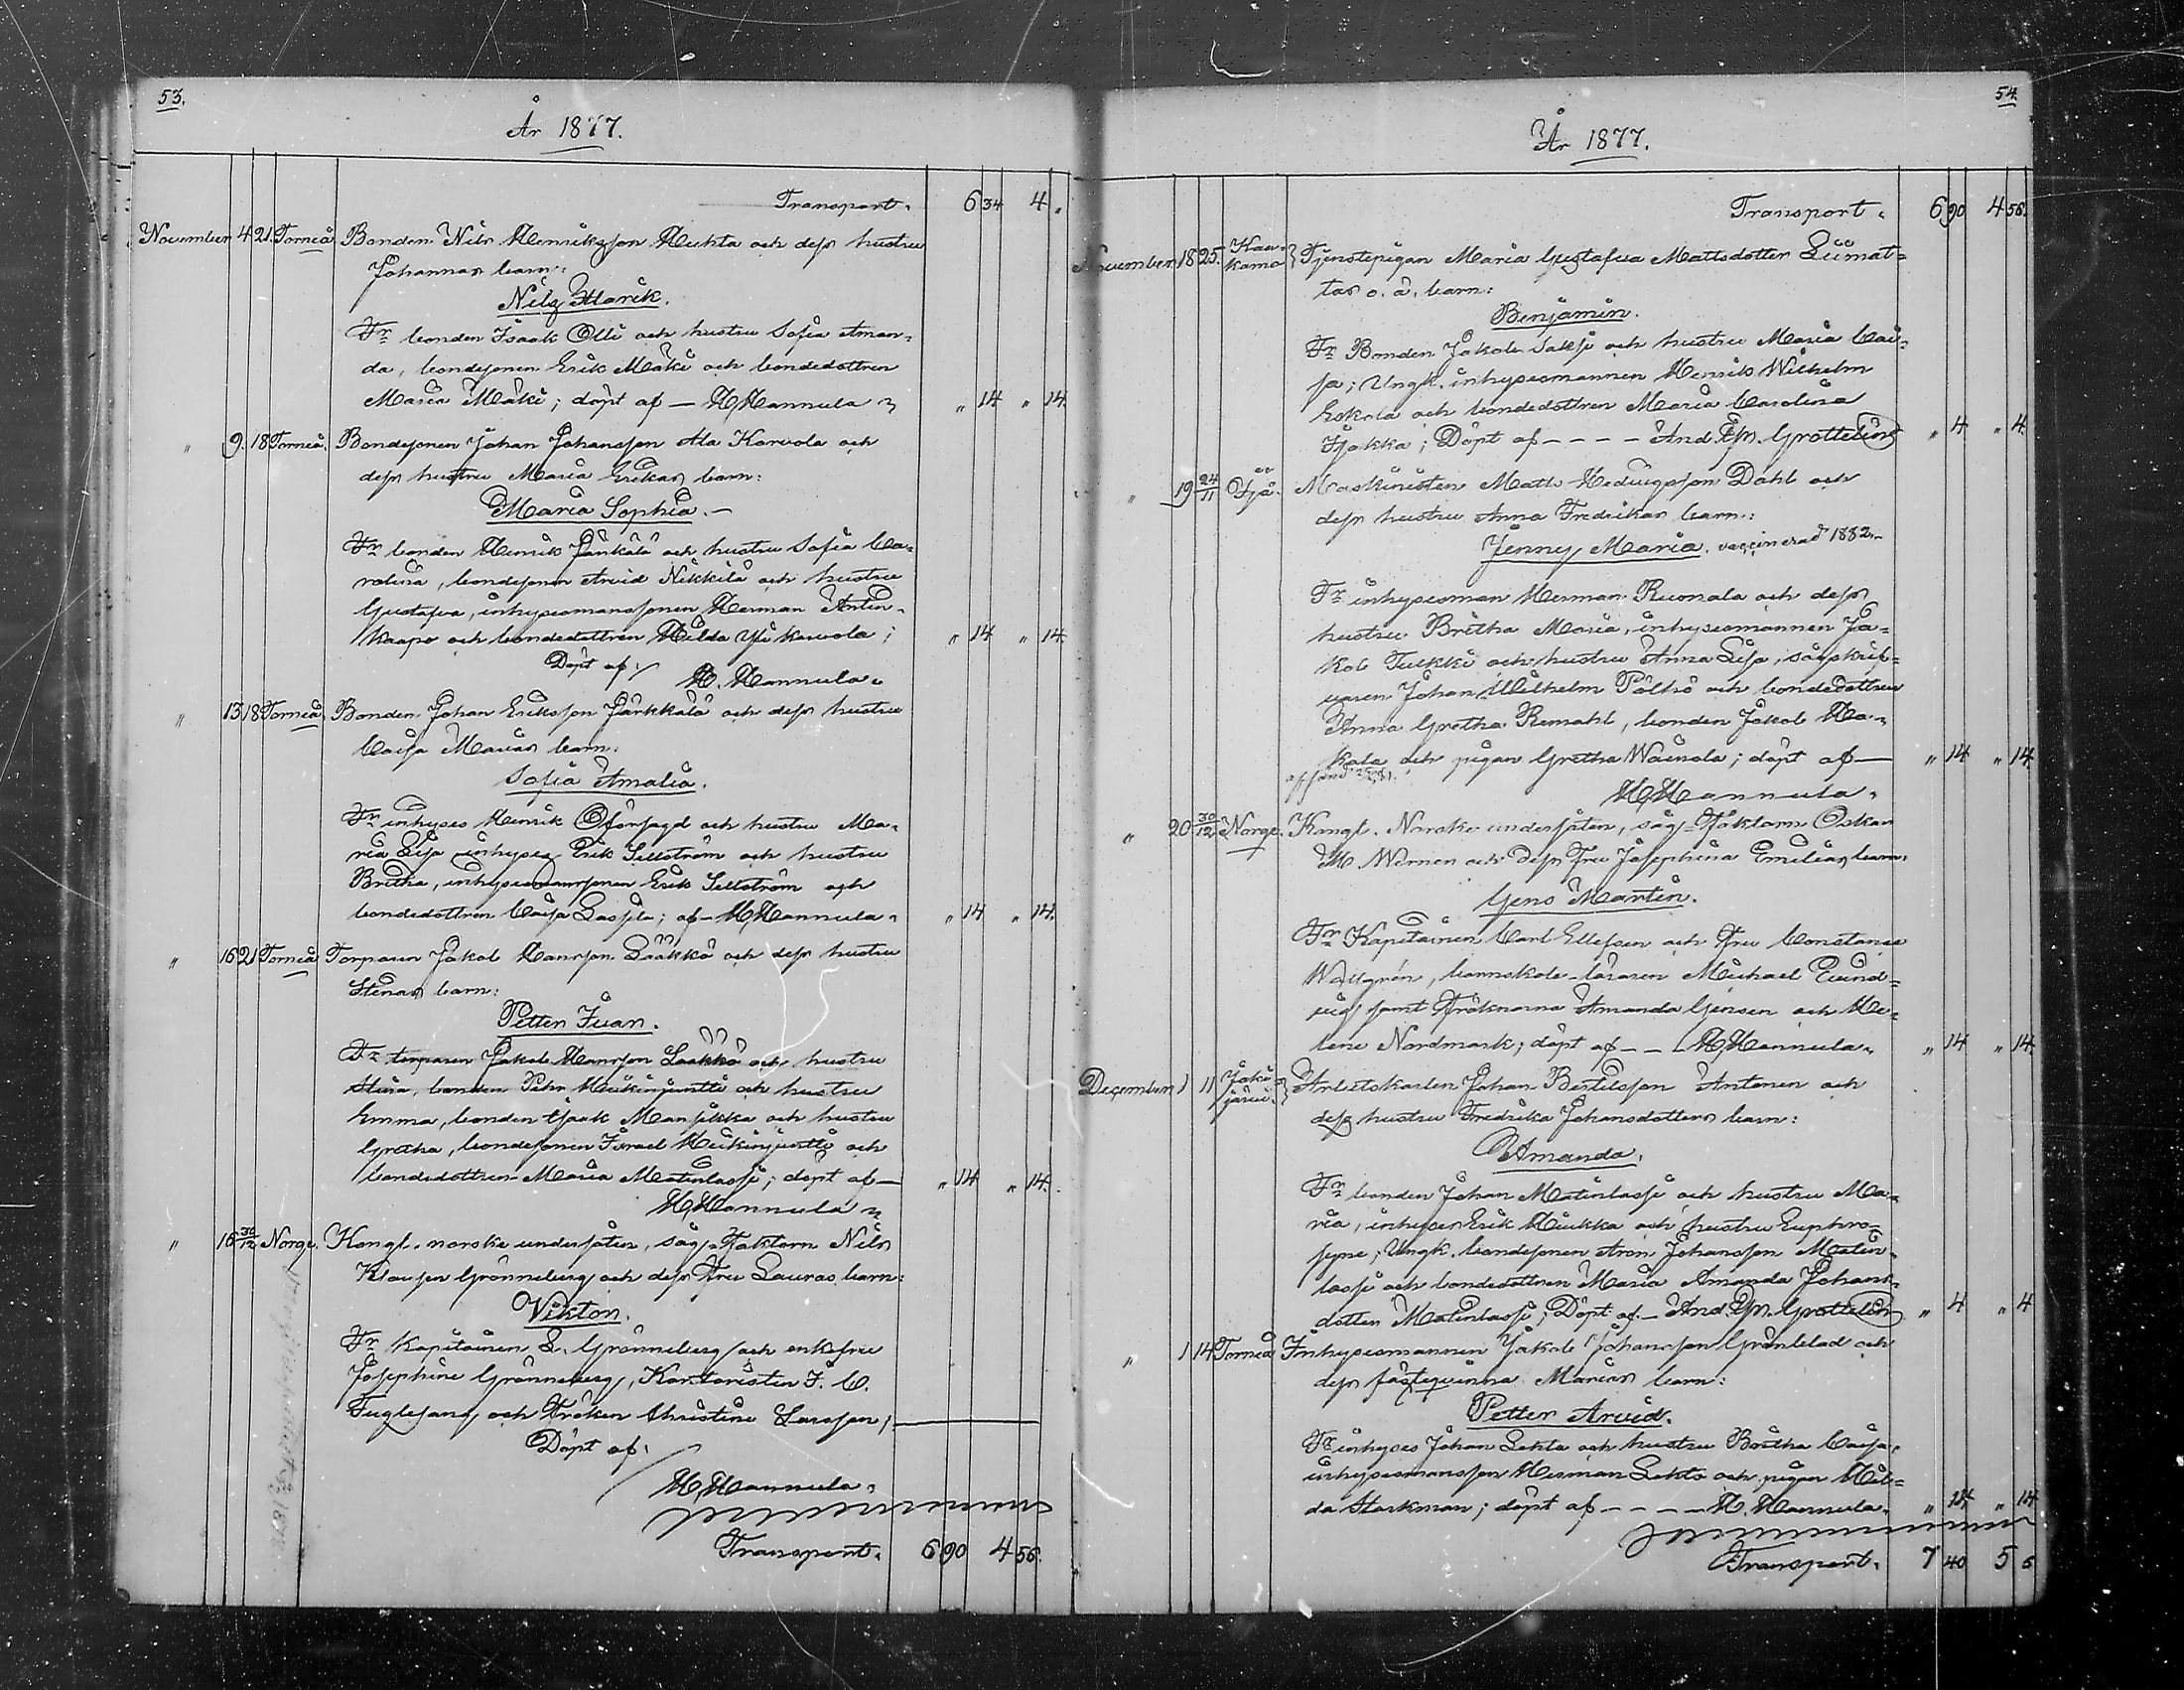 53.
År 1877.
Transport. 6 34 4 "
November 4 21. Torneå Bonden Nils Henriksson Huhta och dess hustru
Johannas barn:
Nils Alarik.
Fr bonden Isaak Olli och hustru Sofia Aman-
da, bondesonen Erik Mäki och bondedottren
Maria Mäki; döpt af — H. Hannula " 14 " 14.
" 9. 18 Torneå. Bondesonen Johan Johansson Ala Korvola och
dess hustru Maria Erikas barn:
Maria Sophia. —
Fr bonden Henrik Jänkälä och hustru Sofia Ca-
rolina, bondesonen Arvid Nikkilä och hustru
Gustafva, inhysesmanssonen Herman Antin-
kaapo och bondedottren Hilda Yli korvola; " 14 " 14.
Döpt af:
H. Hannula.
" 13 18 Torneå Bonden Johan Eriksson Järkkälä och dess hustru
Caisa Marias barn:
Sofia Amalia.
Fr inhyses Henrik Oförsagd och hustru Ma-
ria Lisa inhyses Erik Sellström och hustru
Britha, inhysesmanssonen Erik Sellström och
bondedottren Caisa Lassila; af — H. Hannula. " 14 " 14.
" 16 21 Torneå Torparen Jakob Hansson Lääkkö och dess hustru
Stinas barn:
Petter Ivan.
Fr torparen Jakob Hansson Laakkö och hustru
Stina, bonden Pehr Heikinjuntti och hustru
Emma, bonden Isaak Mansikka och hustru
Gretha, bondesonen Israel Heikinjuntti och
bondedottren Maria Matinlassi; döpt af — " 14 " 14.
H. Hannula
" 16 30/12 Norge. Kongl. norske undersåten, såg-Faktorn Nils
Klausen Grönneberg och dess Fru Lauras barn:
Viktor.
Fr Kapitainen L. Grönneberg och enkefru
Josephine Grönneberg, Kontoristen J. C.
Fuglesang och Fröken Christine Larsson;
Döpt af:
H. Hannula.
Transport. 6 90 4 56.
54.
År 1877.
Transport. 6 90 4 56.
November 18 25. Kaa-
kamo Tjenstepigan Maria Gustafva Mattsdotter Liimat-
tas o. ä. barn:
Benjamin.
Fr Bonden Jakob Saksi och hustru Maria Cai-
sa; Ungk. inhysesmannen Henrik Wilhelm
Eskola och bondedottren Maria Carolina
Isakka; Döpt af — — — — And. Grottelin " 4 " 4.
" 19 24/11 Öfje. Maskinisten Matts Hedvigsson Dahl och
dess hustru Anna Fredrikas barn:
Jenny Maria. vaccinerad 1882.
Fr inhysesman Herman Ruonala och dess
hustru Britha Maria, inhysesmannen Ja-
kob Tulkki och hustru Anna Lisa, sågskrif-
varen Johan Wilhelm Pöltsö och bondedottren
Anna Gretha Remahl, bonden Jakob Ha-
kala och pigan Gretha Wäinola; döpt af — " 14 " 14.
H. Hannula.
" 20 30/12 Norge. Kongl. Norske undersåten, såg-Fäktorn Oskar
M. Wärnen och dess Fru Josephina Emilias barn:
Gens Martin.
Fr Kapitainen Carl Ellefsen och Fru Constance
Wallgrén, barnskole-läraren Michael Lund-
vig samt Fröknarna Amanda Gensen och He-
lene Nordmark; döpt af — — H. Hannula. " 14 " 14.
December 1 11 Joki-
järvi. Arbetskarlen Johan Bertilsson Antonen och
dess hustru Fredrika Johansdotters barn:
Amanda.
Fr bonden Johan Matinlassi och hustru Ma-
ria, inhyses Erik Hiukka och hustru Euphro-
syne; Ungk. bondesonen Aron Johansson Matin-
lassi och bondedottren Maria Amanda Johans-
dotter Matinlassi; Döpt af — And. Grottelin " 4 " 4
" 1 14 Torneå Inhysesmannen Jakob Johansson Grönblad och
dess fästeqvinna Marias barn:
Petter Arvid.
Fr inhyses Johan Lehto och hustru Britha Caisa,
inhysesmansson Herman Lehto och pigan Hil-
da Starkman; döpt af — — — — H. Hannula. " 14 " 14
Transport. 7 40 5 6